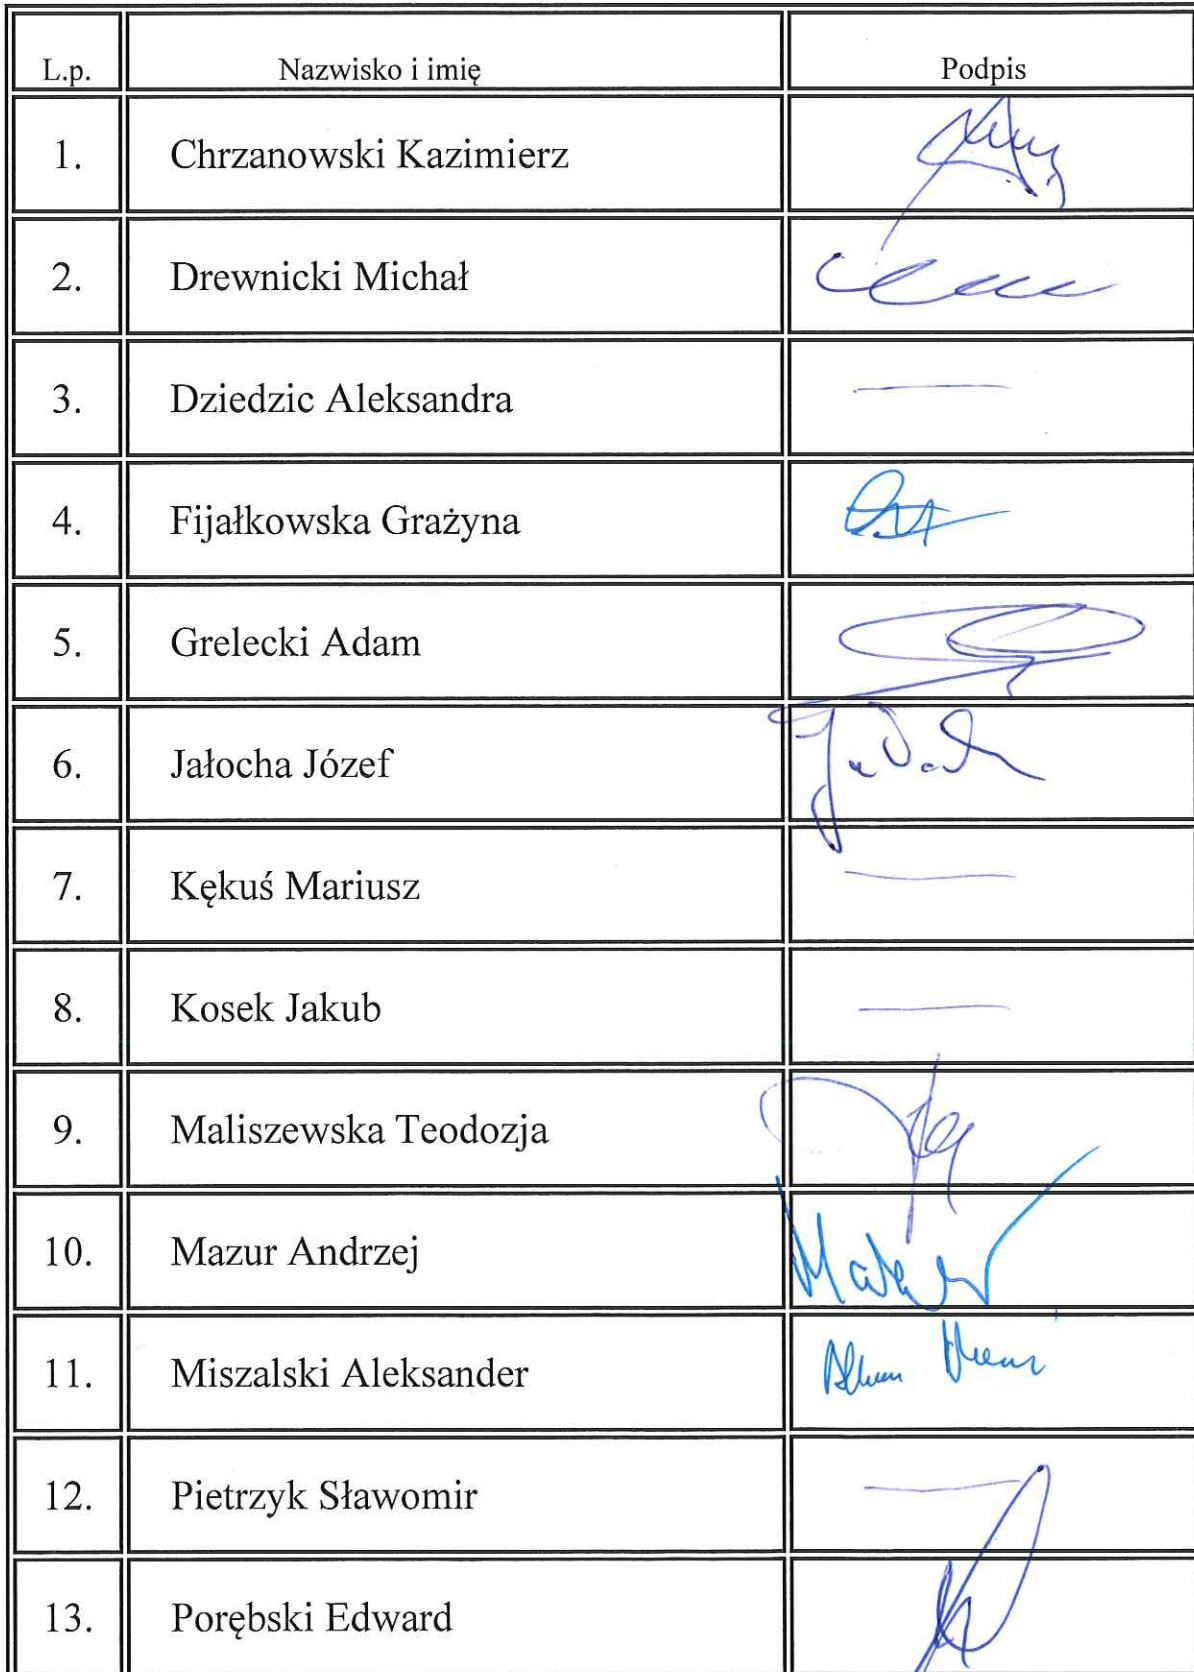 L.p. Nazwisko i imię Podpis
1. Chrzanowski Kazimierz
2. Drewnicki Michał
3. Dziedzic Aleksandra —
4. Fijałkowska Grażyna
5. Grelecki Adam
6. Jałocha Józef
7. Kękuś Mariusz —
8. Kosek Jakub —
9. Maliszewska Teodozja
10. Mazur Andrzej
11. Miszalski Aleksander
12. Pietrzyk Sławomir —
13. Porębski Edward